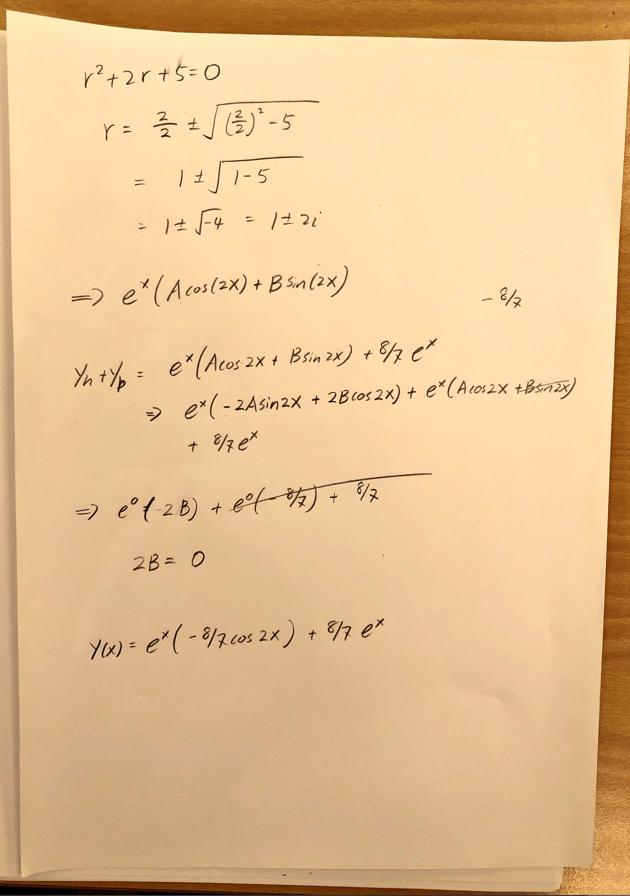 r²+2r+5=0
r = 2/2 ± √((2/2)² - 5)
= 1 ± √(1-5)
= 1 ± √-4 = 1 ± 2i
=> eˣ(A cos(2x) + B sin(2x)
- 8/7
Yh + Yp = eˣ(A cos 2x + B sin 2x) + 8/7 eˣ
=> eˣ(-2A sin 2x + 2B cos 2x) + eˣ(A cos 2x + B sin 2x)
+ 8/7 eˣ
=> e⁰(-2B) + e⁰(-8/7) + 8/7
2B = 0
Y(x) = eˣ(-8/7 cos 2x) + 8/7 eˣ